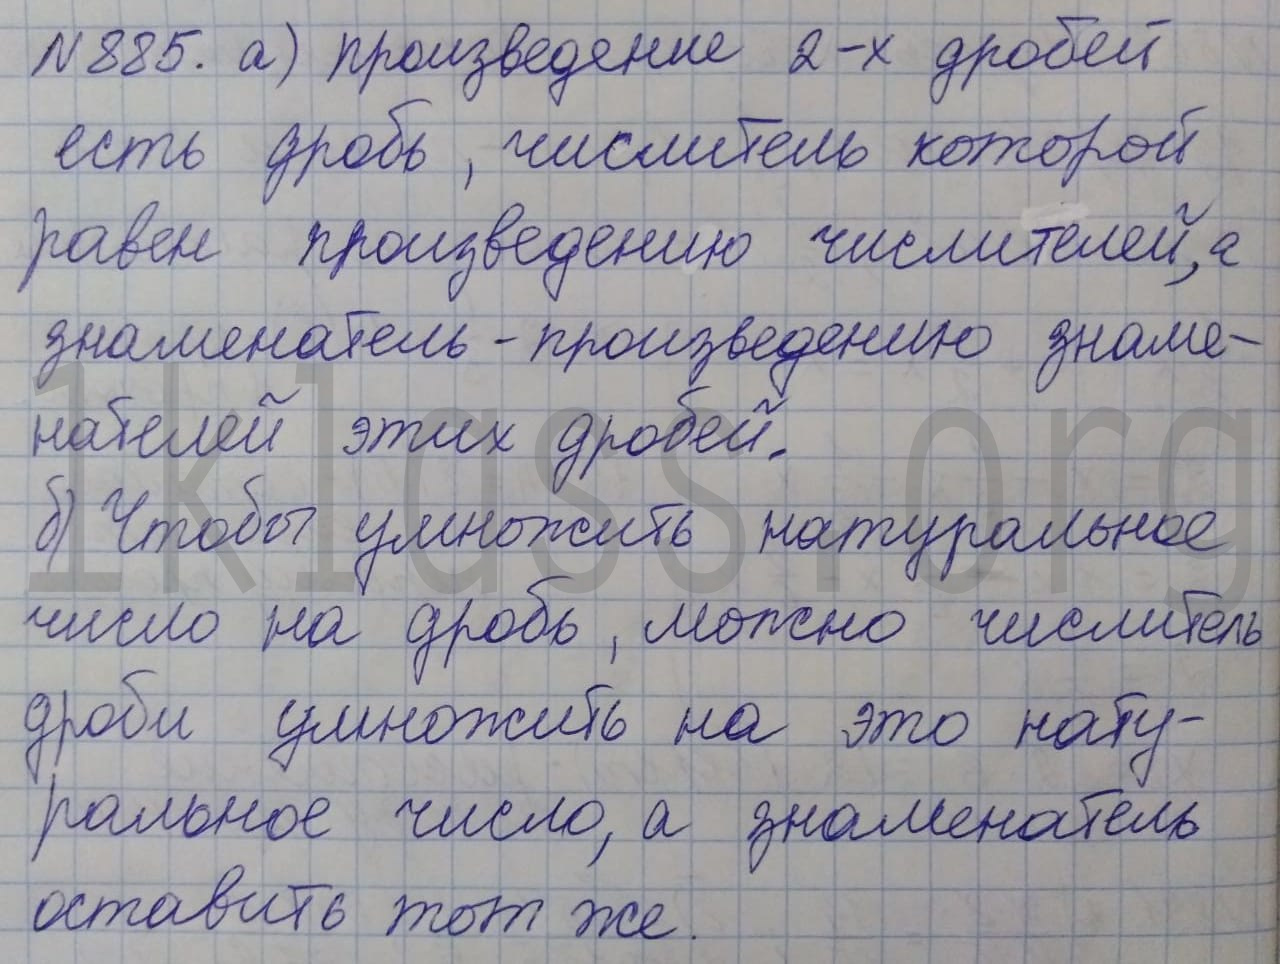 N 885. а) произведение 2-х дробей
есть дробь, числитель которой
равен произведению числителей, а
знаменатель - произведению знаме-
нателей этих дробей.
б) Чтобы умножить натуральное
число на дробь, можно числитель
дроби умножить на это нату-
ральное число, а знаменатель
оставить тот же.
1klass.org